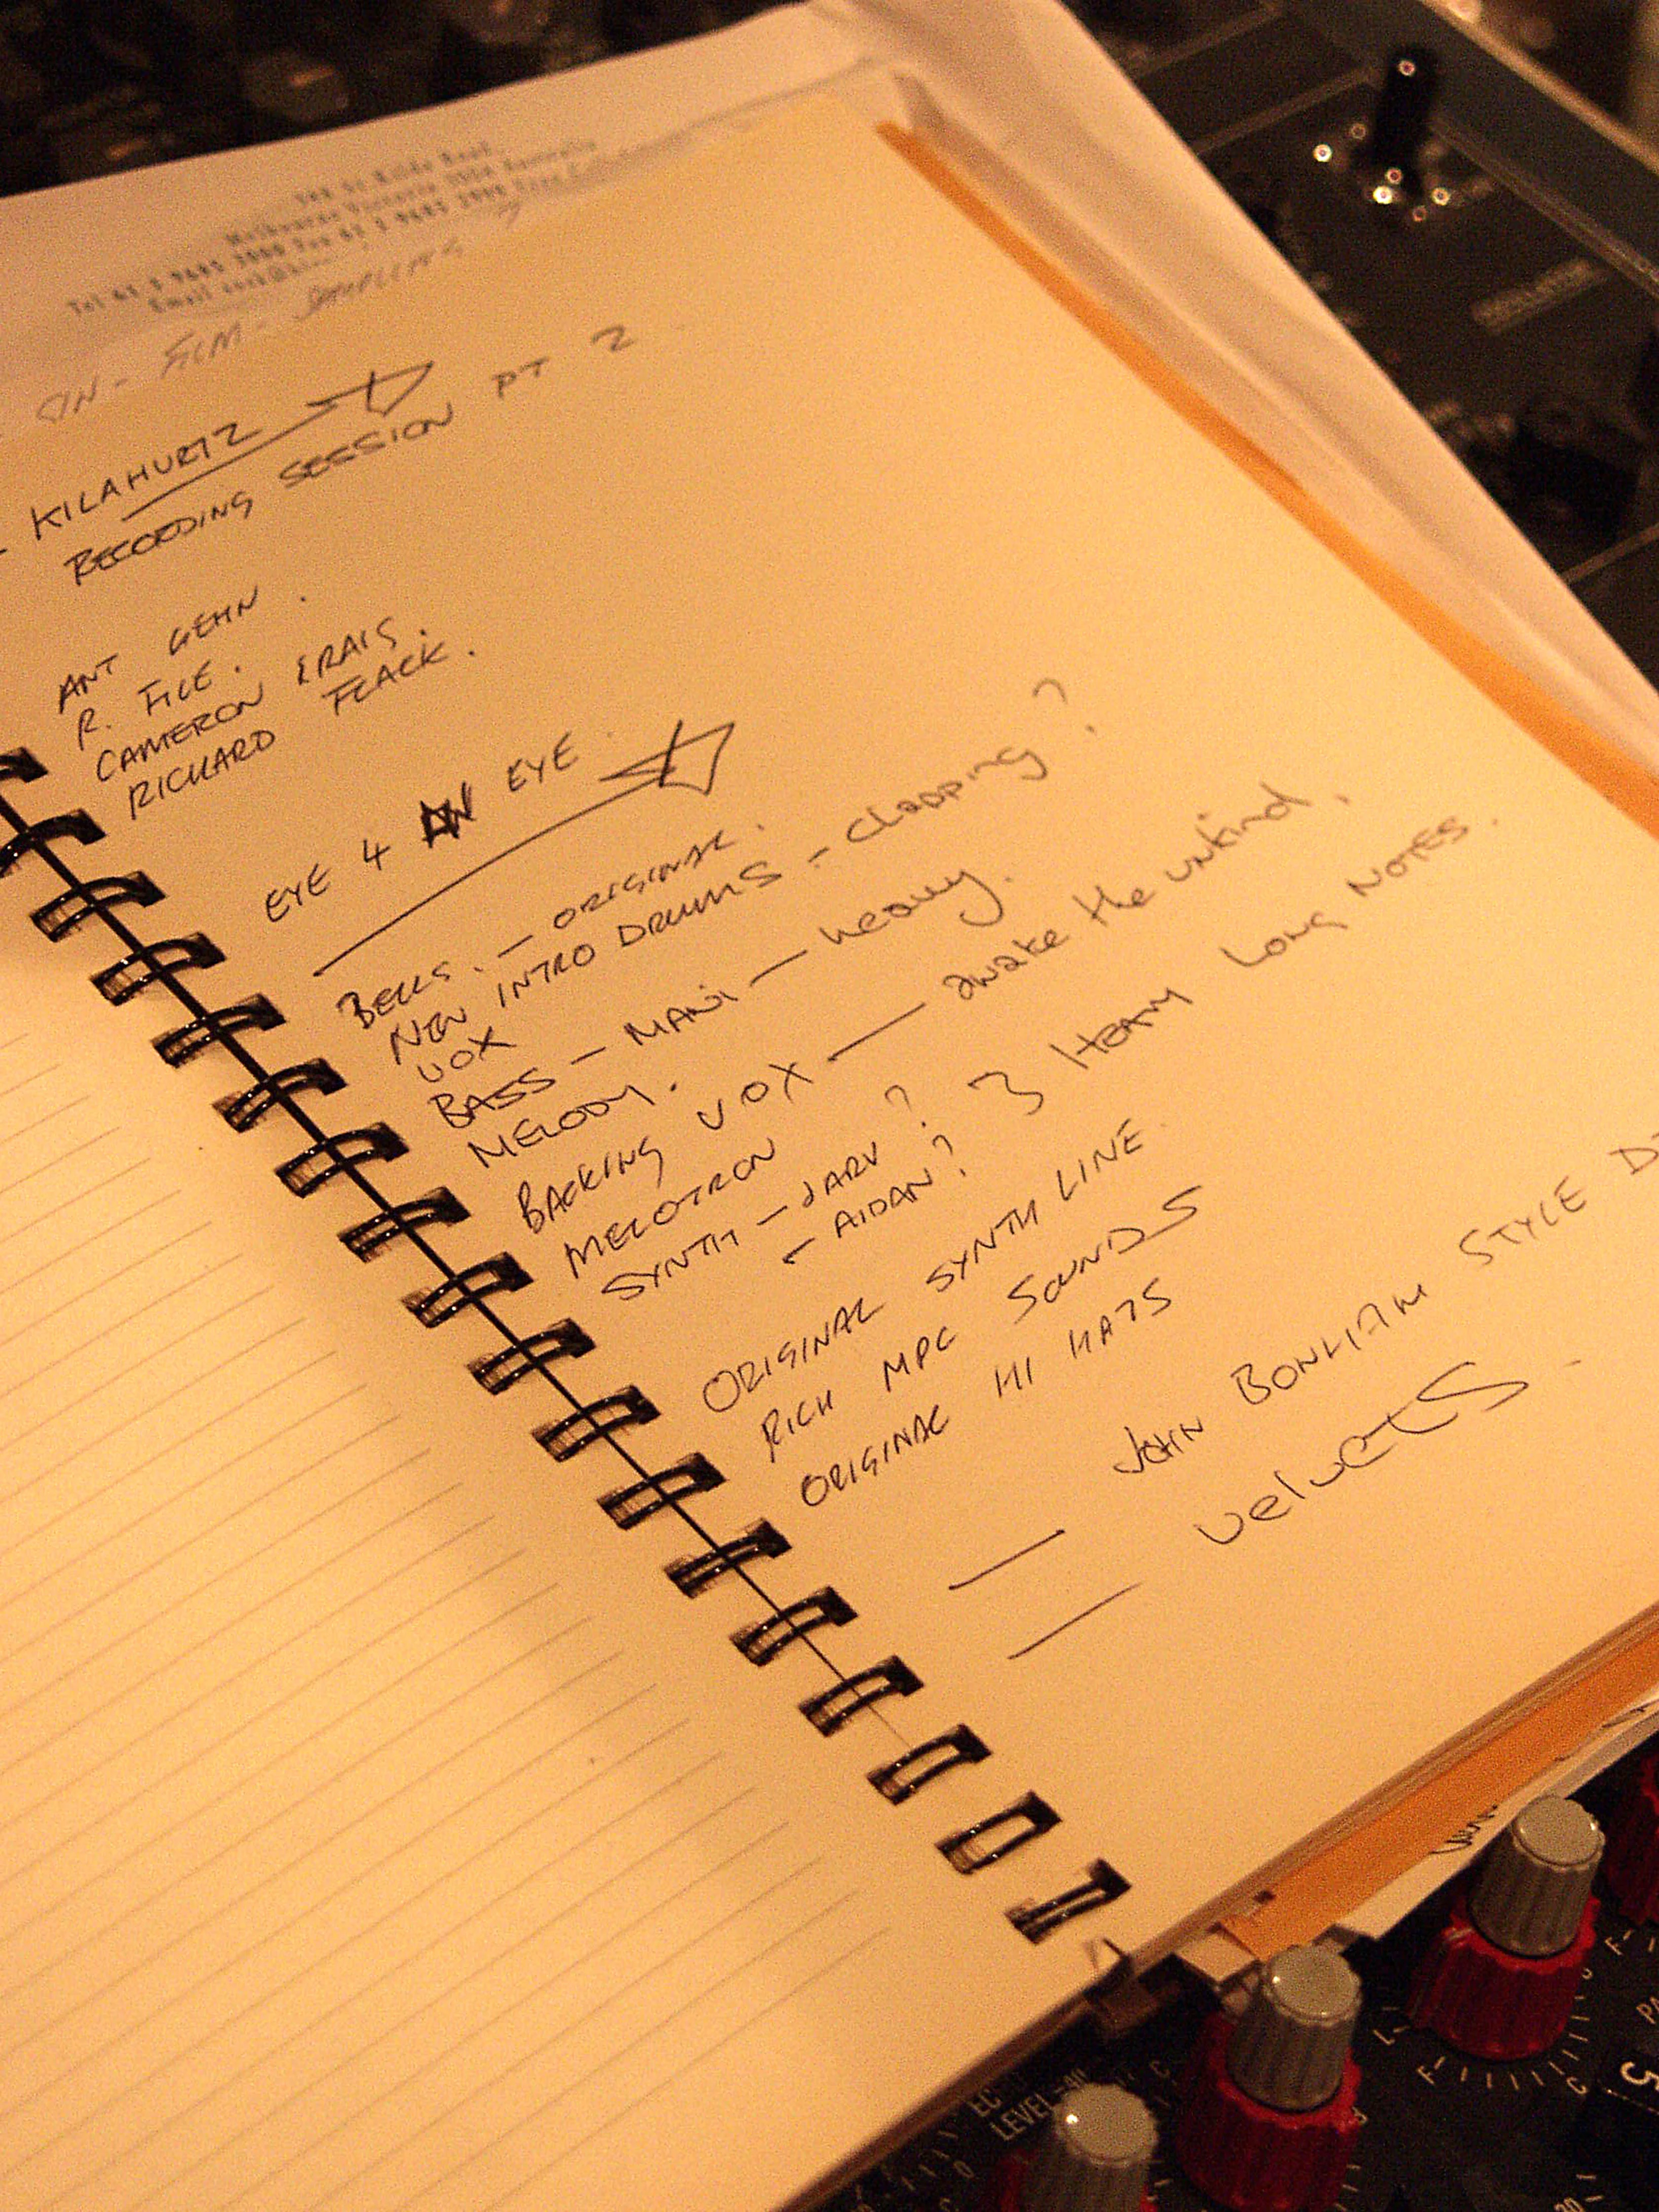 Melbourne Victoria 3004 Australia
FILM - SAMPLING
KILAHURTZ
RECORDING SESSION PT 2
ANT GEHN.
R. FILE.
CAMERON CRAIG.
RICHARD FLACK.
EYE 4 AN EYE.
BELLS. - ORIGINAL.
NEW INTRO DRUMS - clapping?
VOX
BASS - MANI - heavy.
MELODY.
BACKING VOX - awake the unkind.
MELOTRON
SYNTH - JARV? } HEAVY LONG NOTES.
- AIDAN?
ORIGINAL SYNTH LINE.
RICH MPC SOUNDS
ORIGINAL HI HATS
- JOHN BONHAM STYLE
- velvets.
LEVEL
5